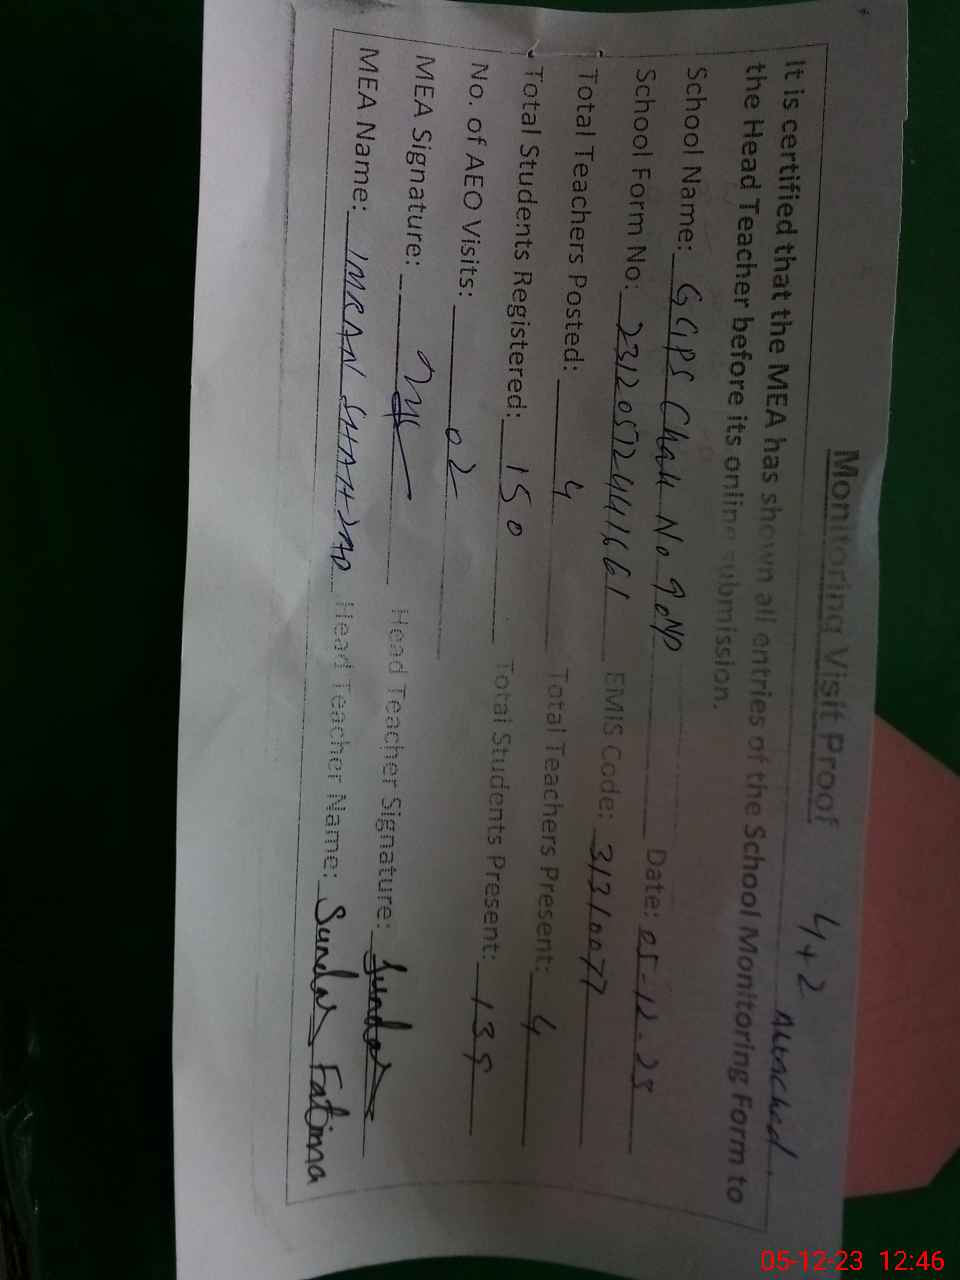 Monitoring Visit Proof 4+2 Attached
It is certified that the MEA has shown all entries of the School Monitoring Form to
the Head Teacher before its online submission.
School Name: GGPS Chak No 90NP Date: 05-12-23
School Form No: 2312057244166 EMIS Code: 31310077
Total Teachers Posted: 4 Total Teachers Present: 4
Total Students Registered: 150 Total Students Present: 139
No. of AEO Visits: 02
MEA Signature: Head Teacher Signature:
MEA Name: IMRAN SHAHZAD Head Teacher Name: Sundas Fatima
05-12-23 12:46